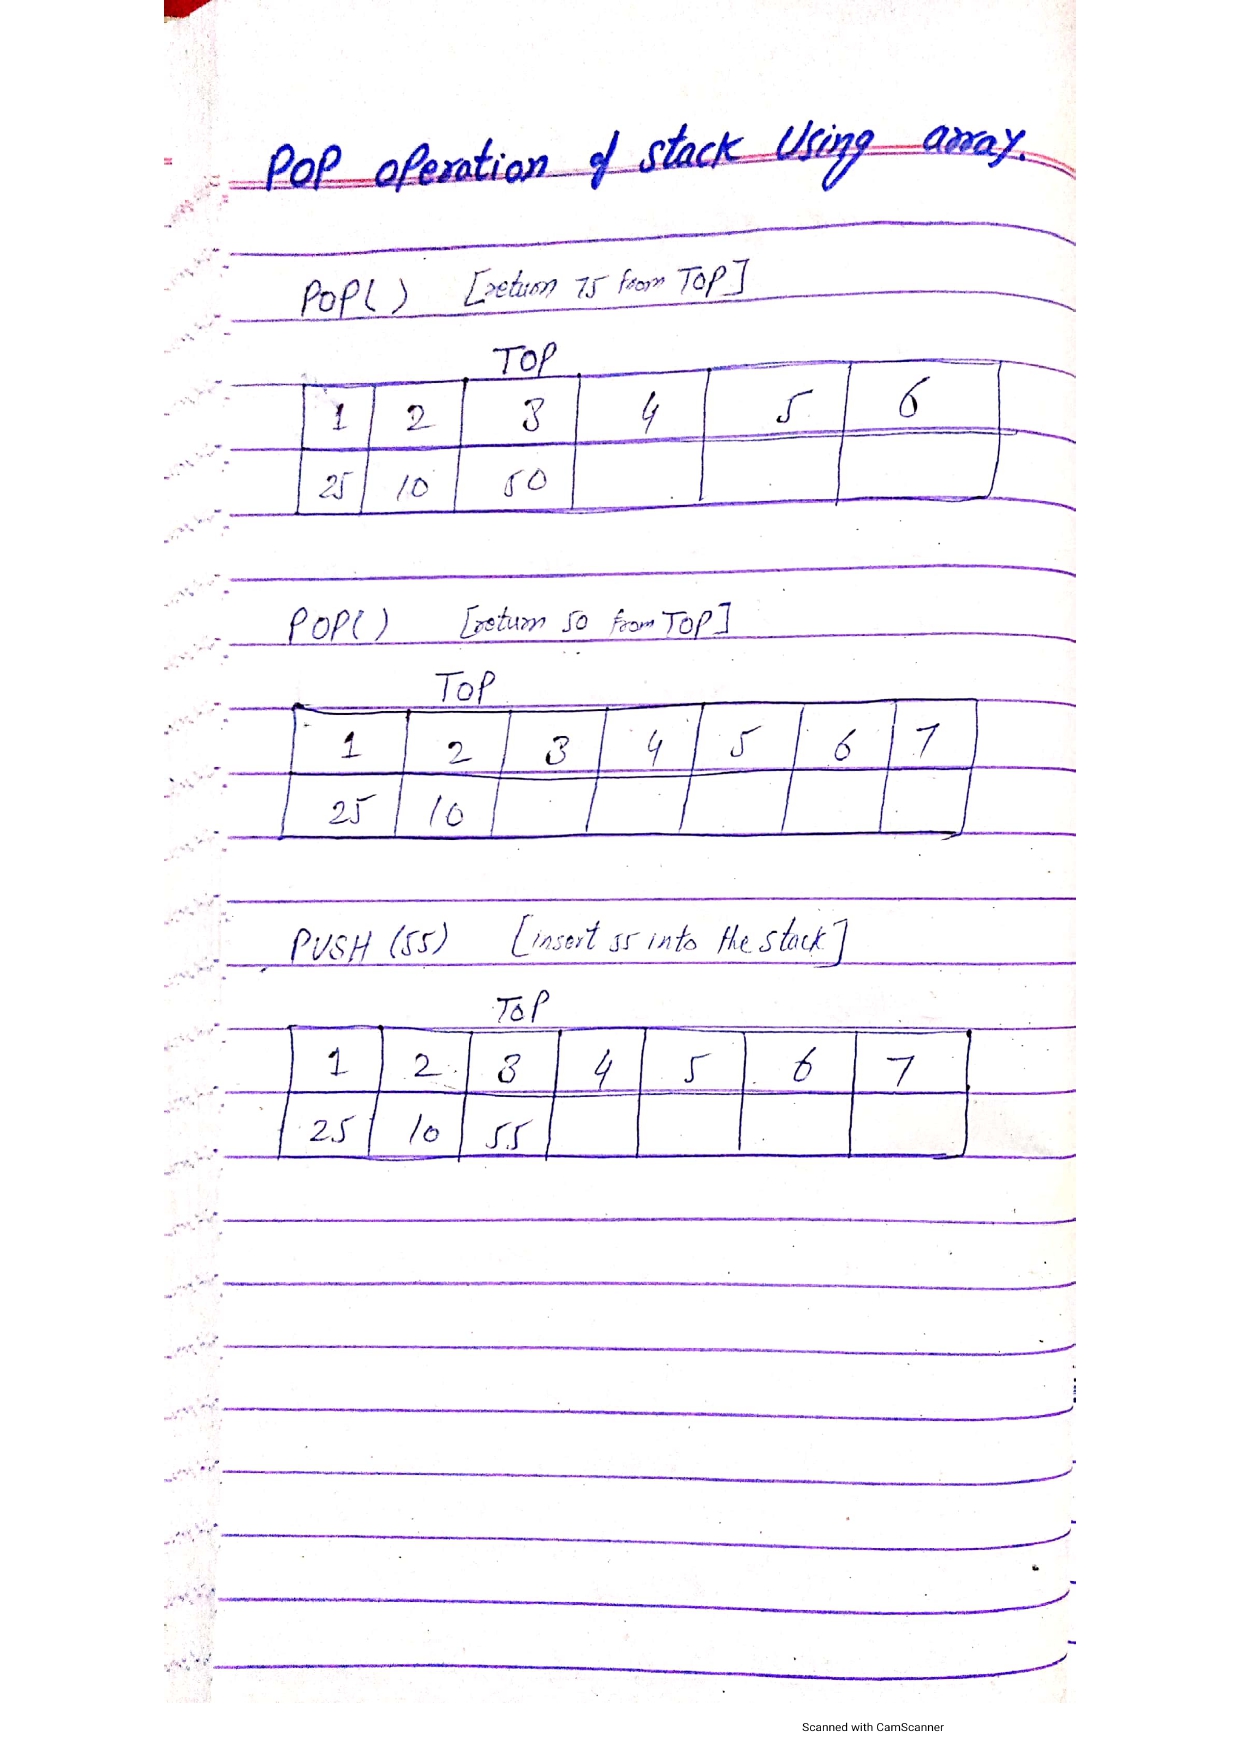 POP operation of stack Using array.
POP() [return 75 from TOP]
TOP
1 2 3 4 5 6
25 10 50
POP() [return 50 from TOP]
TOP
1 2 3 4 5 6 7
25 10
PUSH (55) [insert 55 into the stack]
TOP
1 2 3 4 5 6 7
25 10 55
Scanned with CamScanner